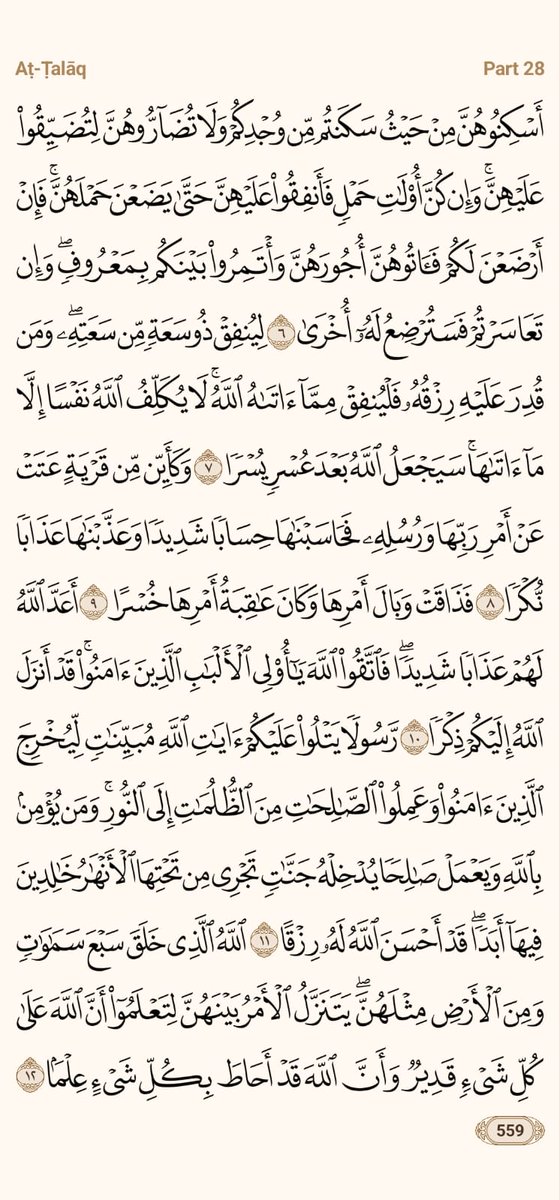 Aṭ-Ṭalāq Part 28
أَسْكِنُوهُنَّ مِنْ حَيْثُ سَكَنتُم مِّن وُجْدِكُمْ وَلَا تُضَآرُّوهُنَّ لِتُضَيِّقُوا۟
عَلَيْهِنَّ ۚ وَإِن كُنَّ أُو۟لَـٰتِ حَمْلٍ فَأَنفِقُوا۟ عَلَيْهِنَّ حَتَّىٰ يَضَعْنَ حَمْلَهُنَّ ۚ فَإِنْ
أَرْضَعْنَ لَكُمْ فَـَٔاتُوهُنَّ أُجُورَهُنَّ ۖ وَأْتَمِرُوا۟ بَيْنَكُم بِمَعْرُوفٍ ۖ وَإِن
تَعَاسَرْتُمْ فَسَتُرْضِعُ لَهُۥٓ أُخْرَىٰ ٦ لِيُنفِقْ ذُو سَعَةٍ مِّن سَعَتِهِۦ ۖ وَمَن
قُدِرَ عَلَيْهِ رِزْقُهُۥ فَلْيُنفِقْ مِمَّآ ءَاتَىٰهُ ٱللَّهُ ۚ لَا يُكَلِّفُ ٱللَّهُ نَفْسًا إِلَّا
مَآ ءَاتَىٰهَا ۚ سَيَجْعَلُ ٱللَّهُ بَعْدَ عُسْرٍ يُسْرًا ٧ وَكَأَيِّن مِّن قَرْيَةٍ عَتَتْ
عَنْ أَمْرِ رَبِّهَا وَرُسُلِهِۦ فَحَاسَبْنَـٰهَا حِسَابًا شَدِيدًا وَعَذَّبْنَـٰهَا عَذَابًا
نُّكْرًا ٨ فَذَاقَتْ وَبَالَ أَمْرِهَا وَكَانَ عَـٰقِبَةُ أَمْرِهَا خُسْرًا ٩ أَعَدَّ ٱللَّهُ
لَهُمْ عَذَابًا شَدِيدًا ۖ فَٱتَّقُوا۟ ٱللَّهَ يَـٰٓأُو۟لِى ٱلْأَلْبَـٰبِ ٱلَّذِينَ ءَامَنُوا۟ ۚ قَدْ أَنزَلَ
ٱللَّهُ إِلَيْكُمْ ذِكْرًا ١٠ رَّسُولًا يَتْلُوا۟ عَلَيْكُمْ ءَايَـٰتِ ٱللَّهِ مُبَيِّنَـٰتٍ لِّيُخْرِجَ
ٱلَّذِينَ ءَامَنُوا۟ وَعَمِلُوا۟ ٱلصَّـٰلِحَـٰتِ مِنَ ٱلظُّلُمَـٰتِ إِلَى ٱلنُّورِ ۚ وَمَن يُؤْمِنۢ
بِٱللَّهِ وَيَعْمَلْ صَـٰلِحًا يُدْخِلْهُ جَنَّـٰتٍ تَجْرِى مِن تَحْتِهَا ٱلْأَنْهَـٰرُ خَـٰلِدِينَ
فِيهَآ أَبَدًا ۖ قَدْ أَحْسَنَ ٱللَّهُ لَهُۥ رِزْقًا ١١ ٱللَّهُ ٱلَّذِى خَلَقَ سَبْعَ سَمَـٰوَٰتٍ
وَمِنَ ٱلْأَرْضِ مِثْلَهُنَّ ۖ يَتَنَزَّلُ ٱلْأَمْرُ بَيْنَهُنَّ لِتَعْلَمُوٓا۟ أَنَّ ٱللَّهَ عَلَىٰ
كُلِّ شَىْءٍ قَدِيرٌ وَأَنَّ ٱللَّهَ قَدْ أَحَاطَ بِكُلِّ شَىْءٍ عِلْمًۢا ١٢
559